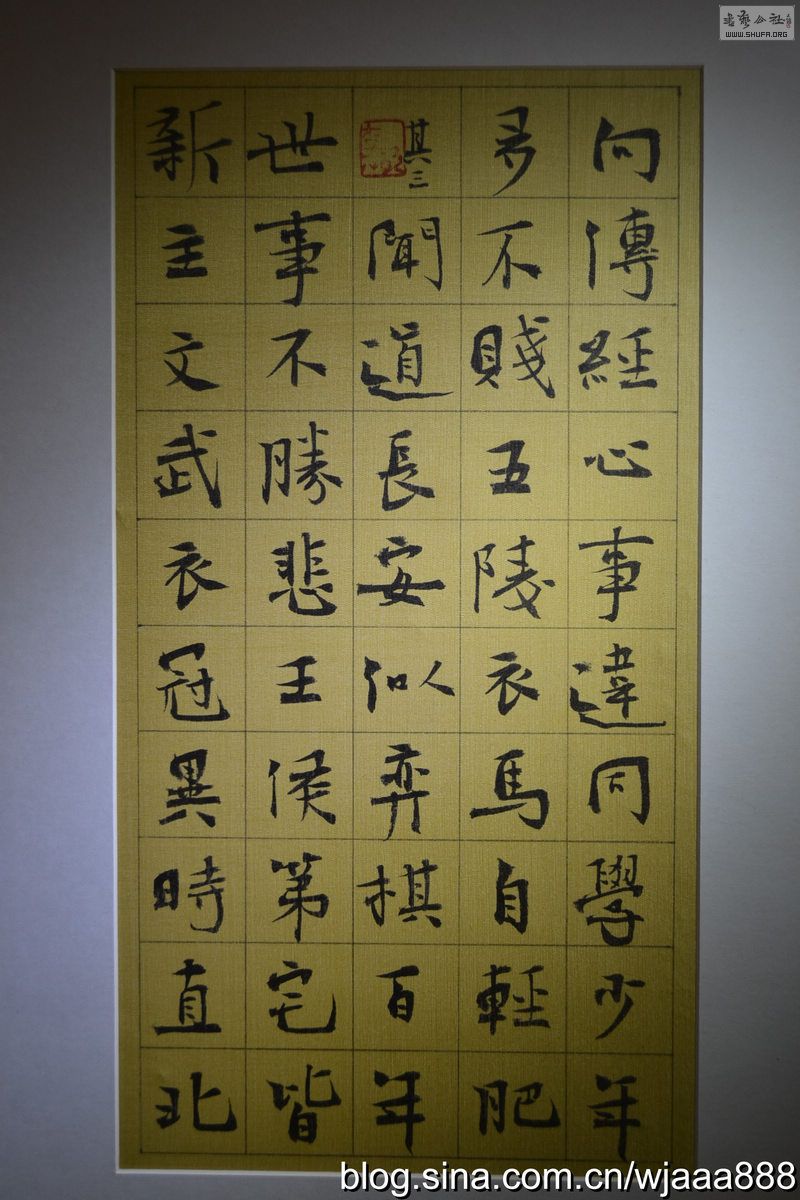 書藝公社
WWW.SHUFA.ORG
向傳經心事違同學少年
多不賤五陵衣馬自輕肥
其三
聞道長安似弈棋百年
世事不勝悲王侯第宅皆
新主文武衣冠異時直北
blog.sina.com.cn/wjaaa888